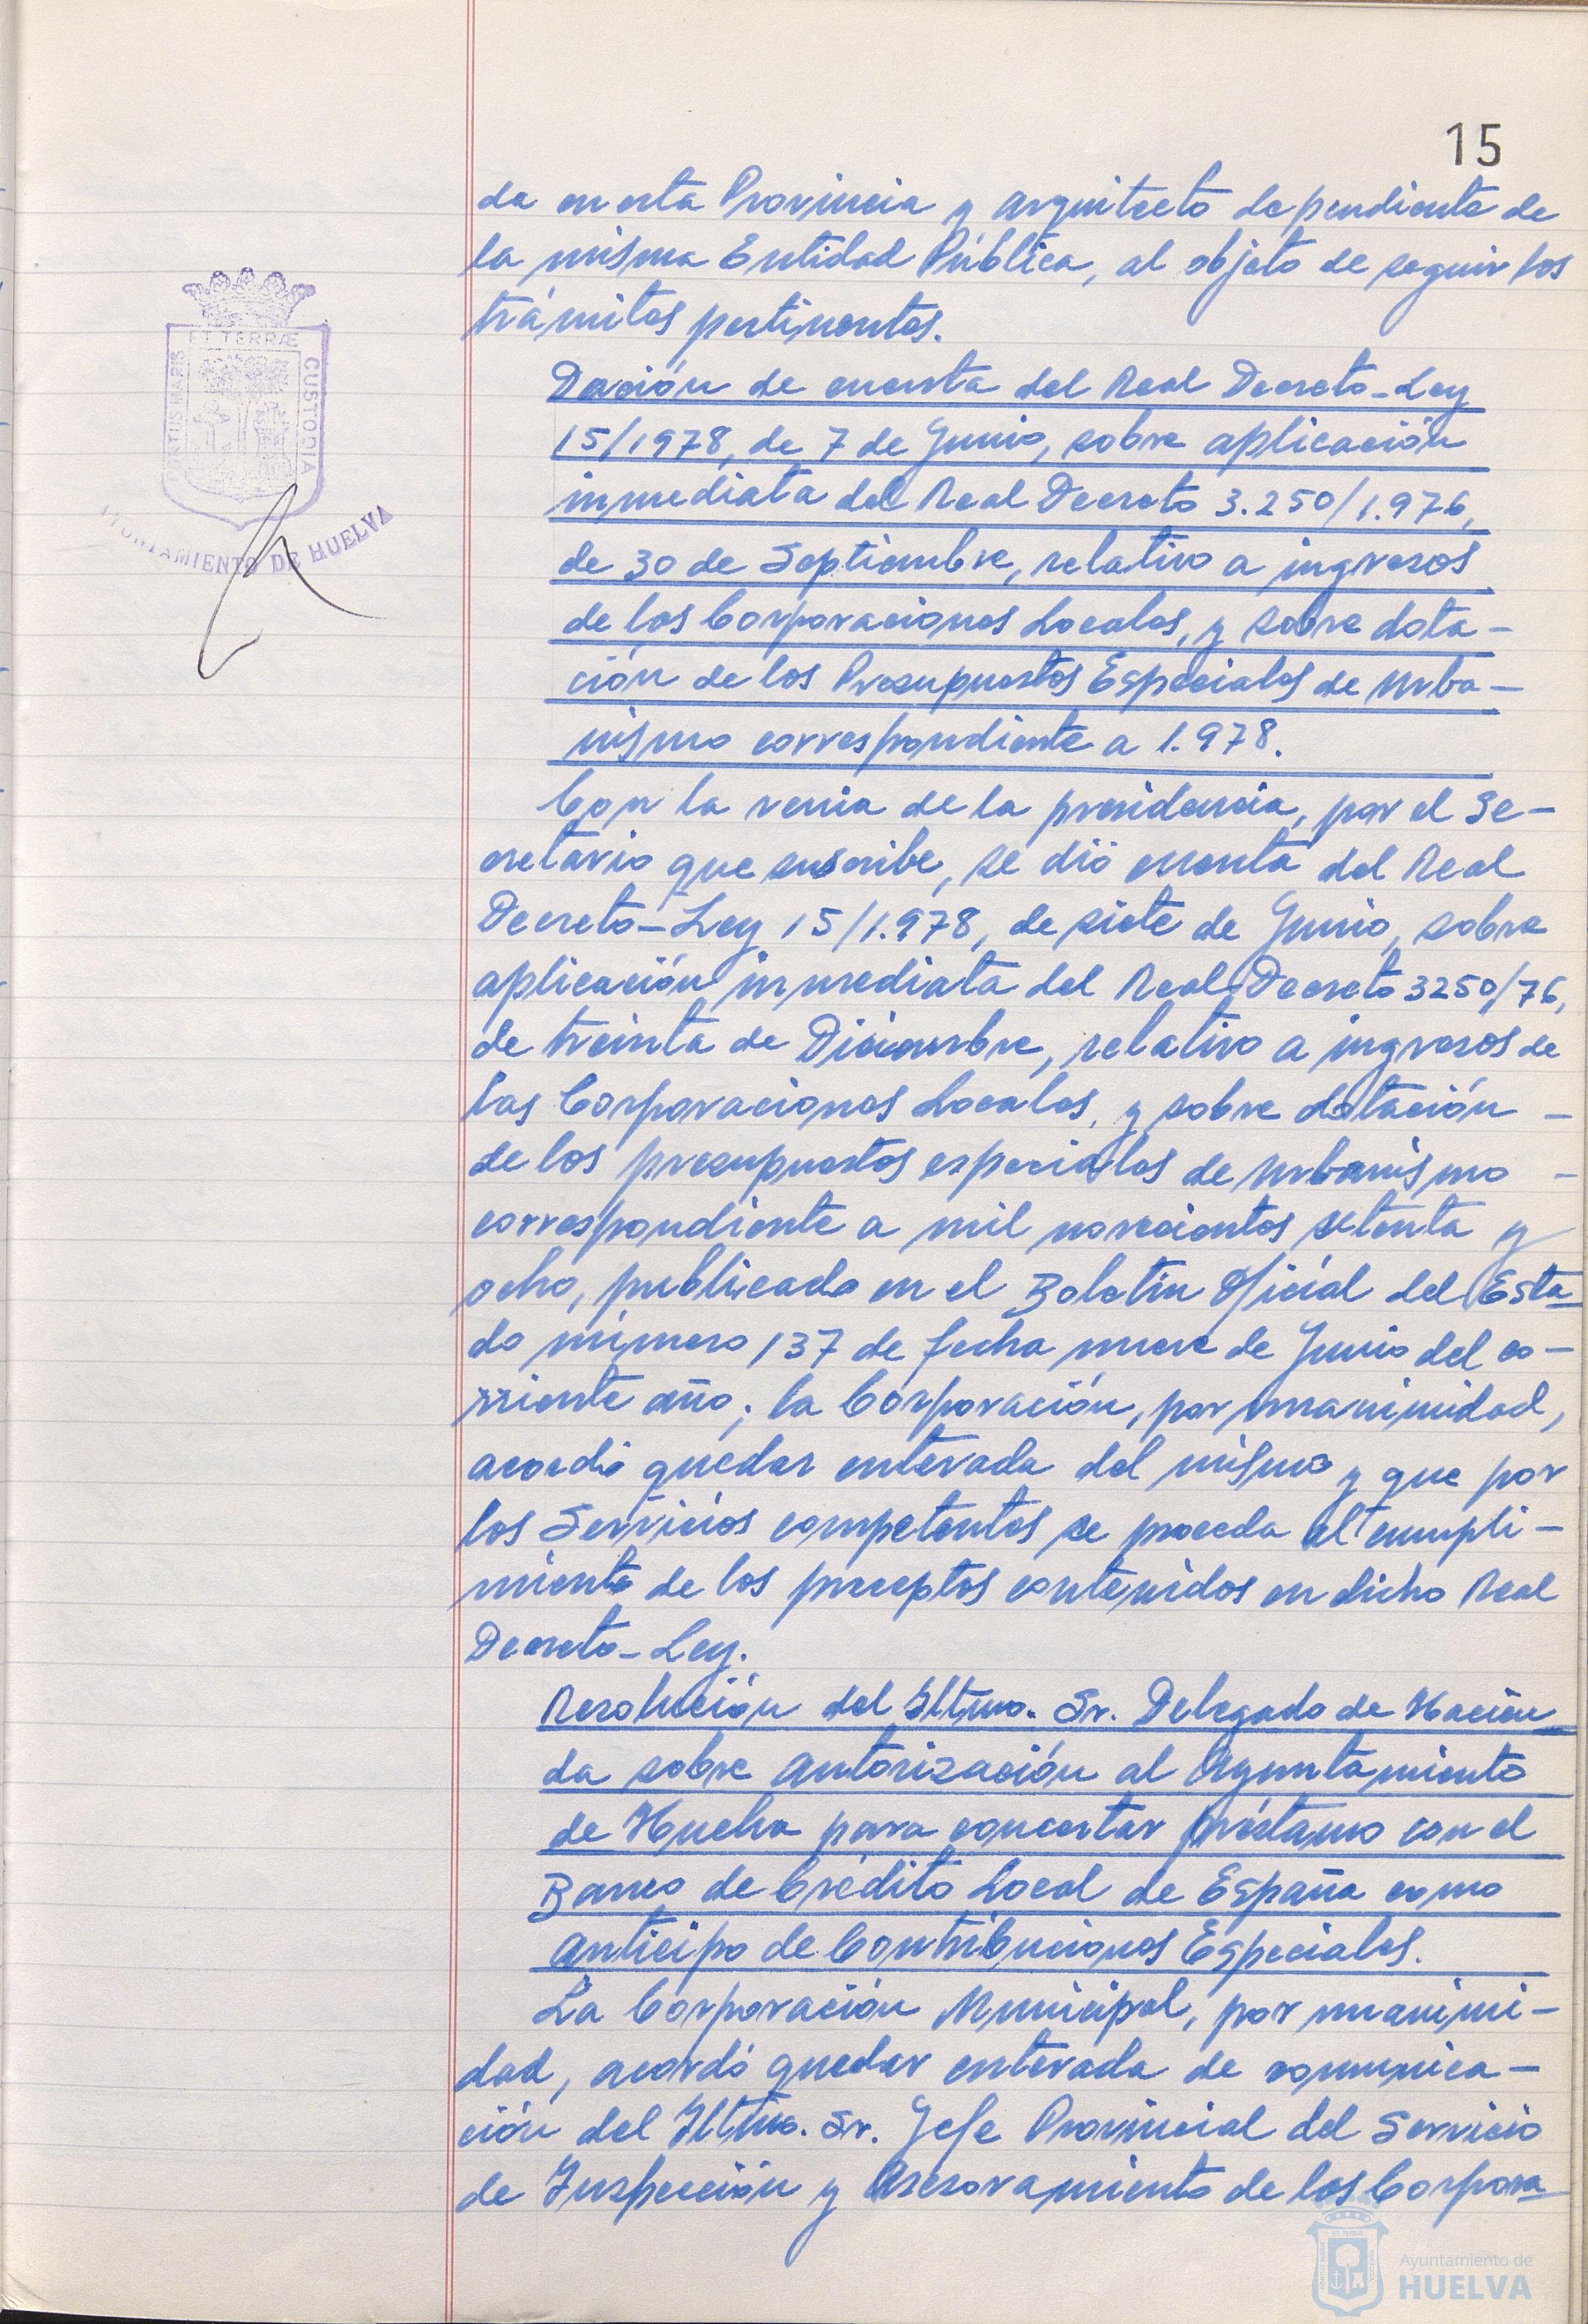 15
da en esta Provincia y arquitecto dependiente de
la misma Entidad Pública, al objeto de seguir los
trámites pertinentes.
Dación de cuenta del Real Decreto-Ley
15/1978, de 7 de Junio, sobre aplicación
inmediata del Real Decreto 3.250/1.976,
de 30 de Septiembre, relativo a ingresos
de las Corporaciones Locales, y sobre dota-
ción de los Presupuestos Especiales de Urba-
nismo correspondiente a 1.978.
Con la venia de la presidencia, por el Se-
cretario que suscribe, se dió cuenta del Real
Decreto-Ley 15/1.978, de siete de Junio, sobre
aplicación inmediata del Real Decreto 3250/76,
de treinta de Diciembre, relativo a ingresos de
las Corporaciones Locales, y sobre dotación -
de los presupuestos especiales de urbanismo -
correspondiente a mil novecientos setenta y
ocho, publicado en el Boletín Oficial del Esta-
do número 137 de fecha nueve de Junio del co-
rriente año; la Corporación, por unanimidad,
acordó quedar enterada del mismo y que por
los Servicios competentes se proceda al cumpli-
miento de los preceptos contenidos en dicho Real
Decreto-Ley.
Resolución del Iltmo. Sr. Delegado de Hacien-
da sobre autorización al Ayuntamiento
de Huelva para concertar préstamo con el
Banco de Crédito Local de España como
anticipo de Contribuciones Especiales.
La Corporación Municipal, por unanimi-
dad, acordó quedar enterada de comunica-
ción del Iltmo. Sr. Jefe Provincial del Servicio
de Inspección y Asesoramiento de las Corpora-
PORTUS MARIS ET TERRÆ CUSTODIA
AYUNTAMIENTO DE HUELVA
Ayuntamiento de
HUELVA